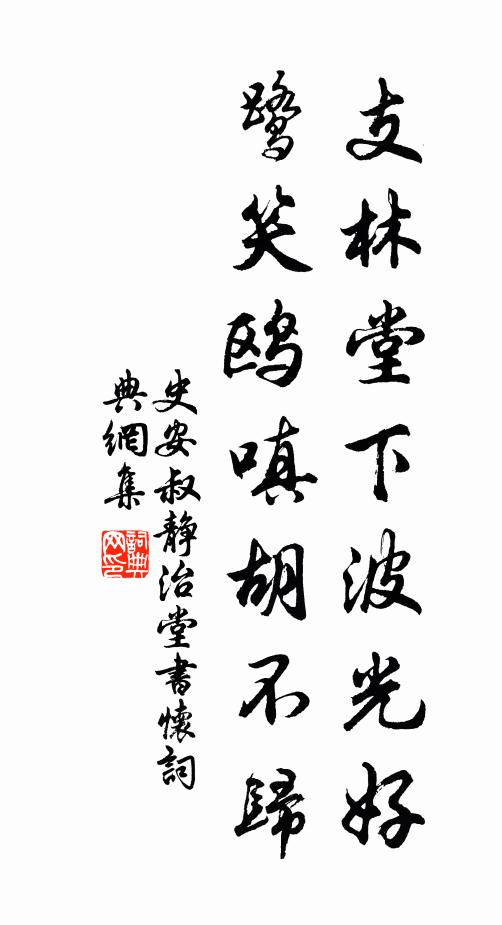 支林堂下波光好
鹭笑鸥嗔胡不歸
史安叔静治堂書懷詞
典網集
詞典
网印